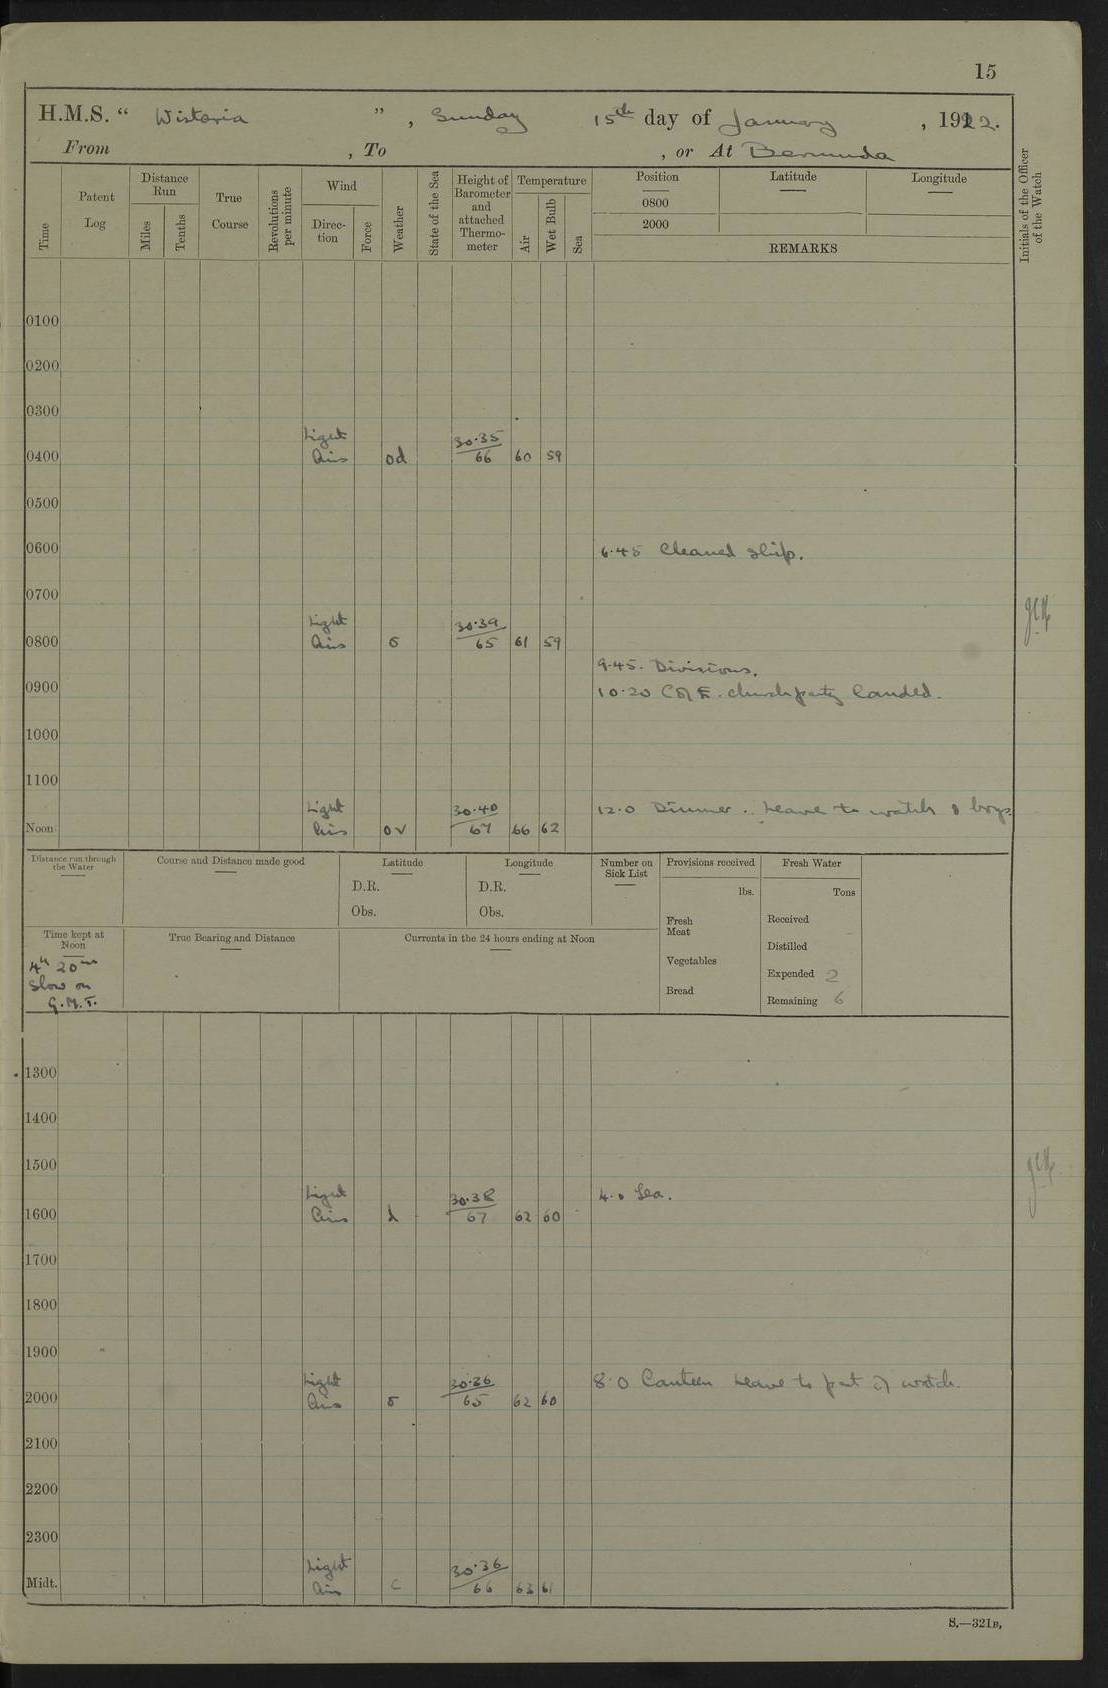 15
H.M.S. “ Wistaria ”, Sunday 15th day of January, 1922.
From , To , or At Bermuda
Time
Patent Log
Distance Run
Miles
Tenths
True Course
Revolutions per minute
Wind
Direction
Force
Weather
State of the Sea
Height of Barometer and attached Thermometer
Temperature
Air
Wet Bulb
Sea
Position Latitude Longitude
0800
2000
REMARKS
Initials of the Officer of the Watch
0100
0200
0300
Light 30.35
0400 Airs od 66 60 59
0500
0600 6.45 Cleaned ship.
0700
Light 30.39
0800 Airs o 65 61 59
9.45. Divisions.
0900 10.20 C of E. church party landed.
1000
1100
Light 30.40 12.0 Dinner. Leave to watch & boys.
Noon Airs ov 67 66 62
Distance run through the Water
Course and Distance made good
Latitude
D.R.
Obs.
Longitude
D.R.
Obs.
Number on Sick List
Provisions received
lbs.
Fresh Meat
Vegetables
Bread
Fresh Water
Tons
Received
Distilled
Expended 2
Remaining 6
Time kept at Noon
4h 20m
Slow on
G.M.T.
True Bearing and Distance
Currents in the 24 hours ending at Noon
1300
1400
1500
Light 30.38 4.0 Tea.
1600 Airs d 67 62 60
1700
1800
1900
Light 30.36 8.0 Canteen Leave to part of watch.
2000 Airs o 65 62 60
2100
2200
2300
Light 30.36
Midt. Airs c 66 63 61
S.—321B.